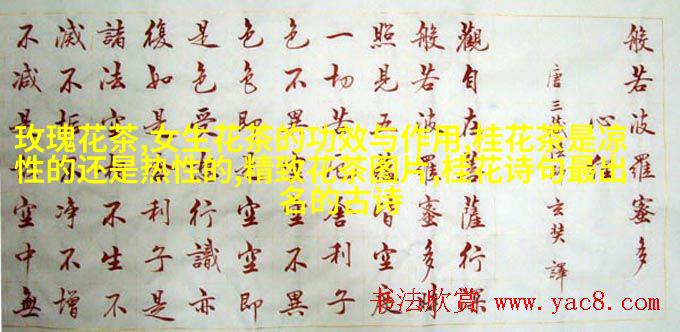 般若波羅蜜多
心經
唐三藏法師玄奘譯
觀自在菩薩行深
般若波羅蜜多時
照見五皆空度
一切苦舍利子
色不異空不異
色色即空空即
是色受行識亦
復如是利子是
諸法空不生不
滅不垢淨不增
不減是空中無
玫瑰花茶,女生花茶的功效与作用,桂花茶是凉
性的还是热性的,精致花茶图片,桂花诗句最出
名的古诗
书法欣赏 www.yac8.com